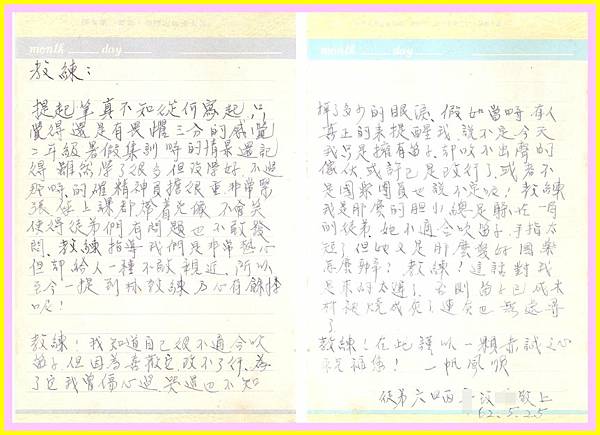 month day
教練：
提起筆真不知從何寫起，只
覺得還是有畏懼三分的感覺
二年級暑假集訓時的情景還記
得雖然學了很多但沒學好，不過
那時的確精神負擔很重非常緊
張在上課都帶着 不會笑
使得徒弟們有問題也不敢發
問、教練指導我們是非常熱心
但却給人一種不敢親近、所以
至今一提到林教練乃心有餘悸
呢！
教練！我知道自己很不適合吹
笛子但因為喜歡它改不了行、為
了它我曾傷心過哭過也不知
month day
掉了多少的眼淚、假如當時有人
真正的來提醒我，說不定今天
我只是擁有笛子、却吹不出聲的
傢伙或許已是改行了，或者不
是國樂團員也說不定呢！教練
我是那麼的胆小總是躲在一旁
的徒弟、她不適合吹笛子、手指太
短了但她又是那麼愛好國樂
怎麼辦？教練！這話對我
是來的太遲了、否則笛子已成木
材被燒成灰了連灰也無處尋
了
教練！在此謹以一顆赤誠之心
祝福您！一帆風順
徒弟 六四 敬上
62.5.25